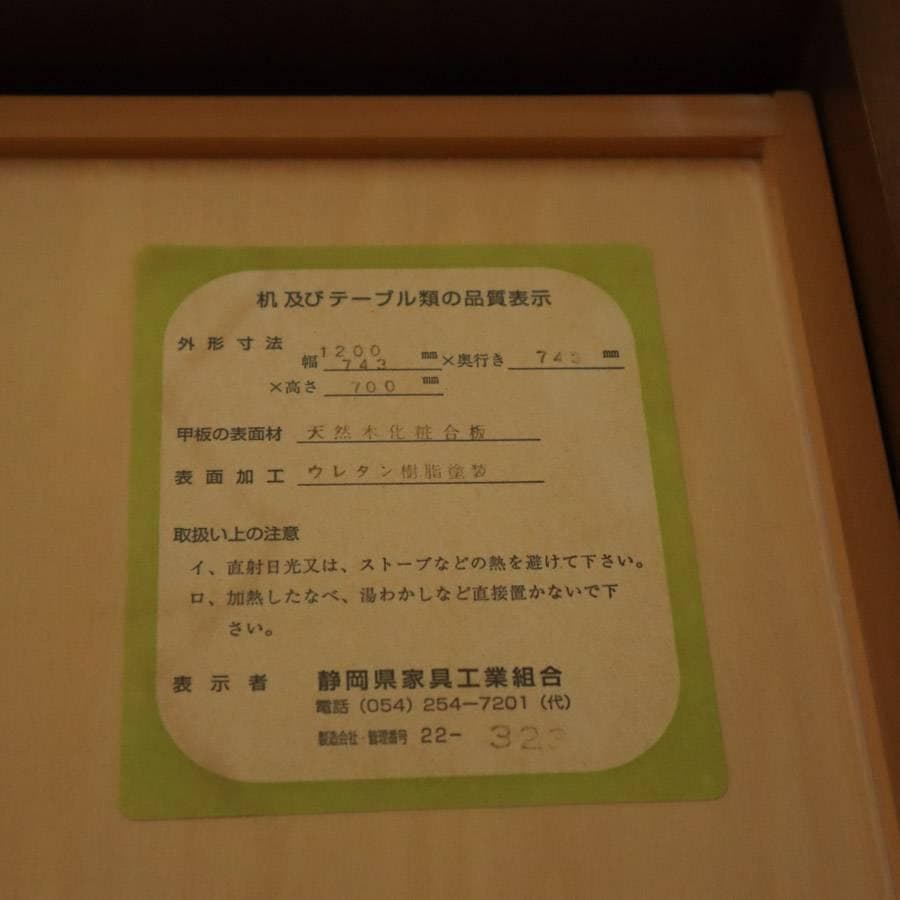 机及びテーブル類の品質表示
外形寸法 幅 1200 743 mm×奥行き 743 mm
×高さ 700 mm
甲板の表面材 天然木化粧合板
表面加工 ウレタン樹脂塗装
取扱い上の注意
イ、直射日光又は、ストーブなどの熱を避けて下さい。
ロ、加熱したなべ、湯わかしなど直接置かないで下
さい。
表示者 静岡県家具工業組合
電話 (054) 254-7201 (代)
製造会社・管理番号 22-